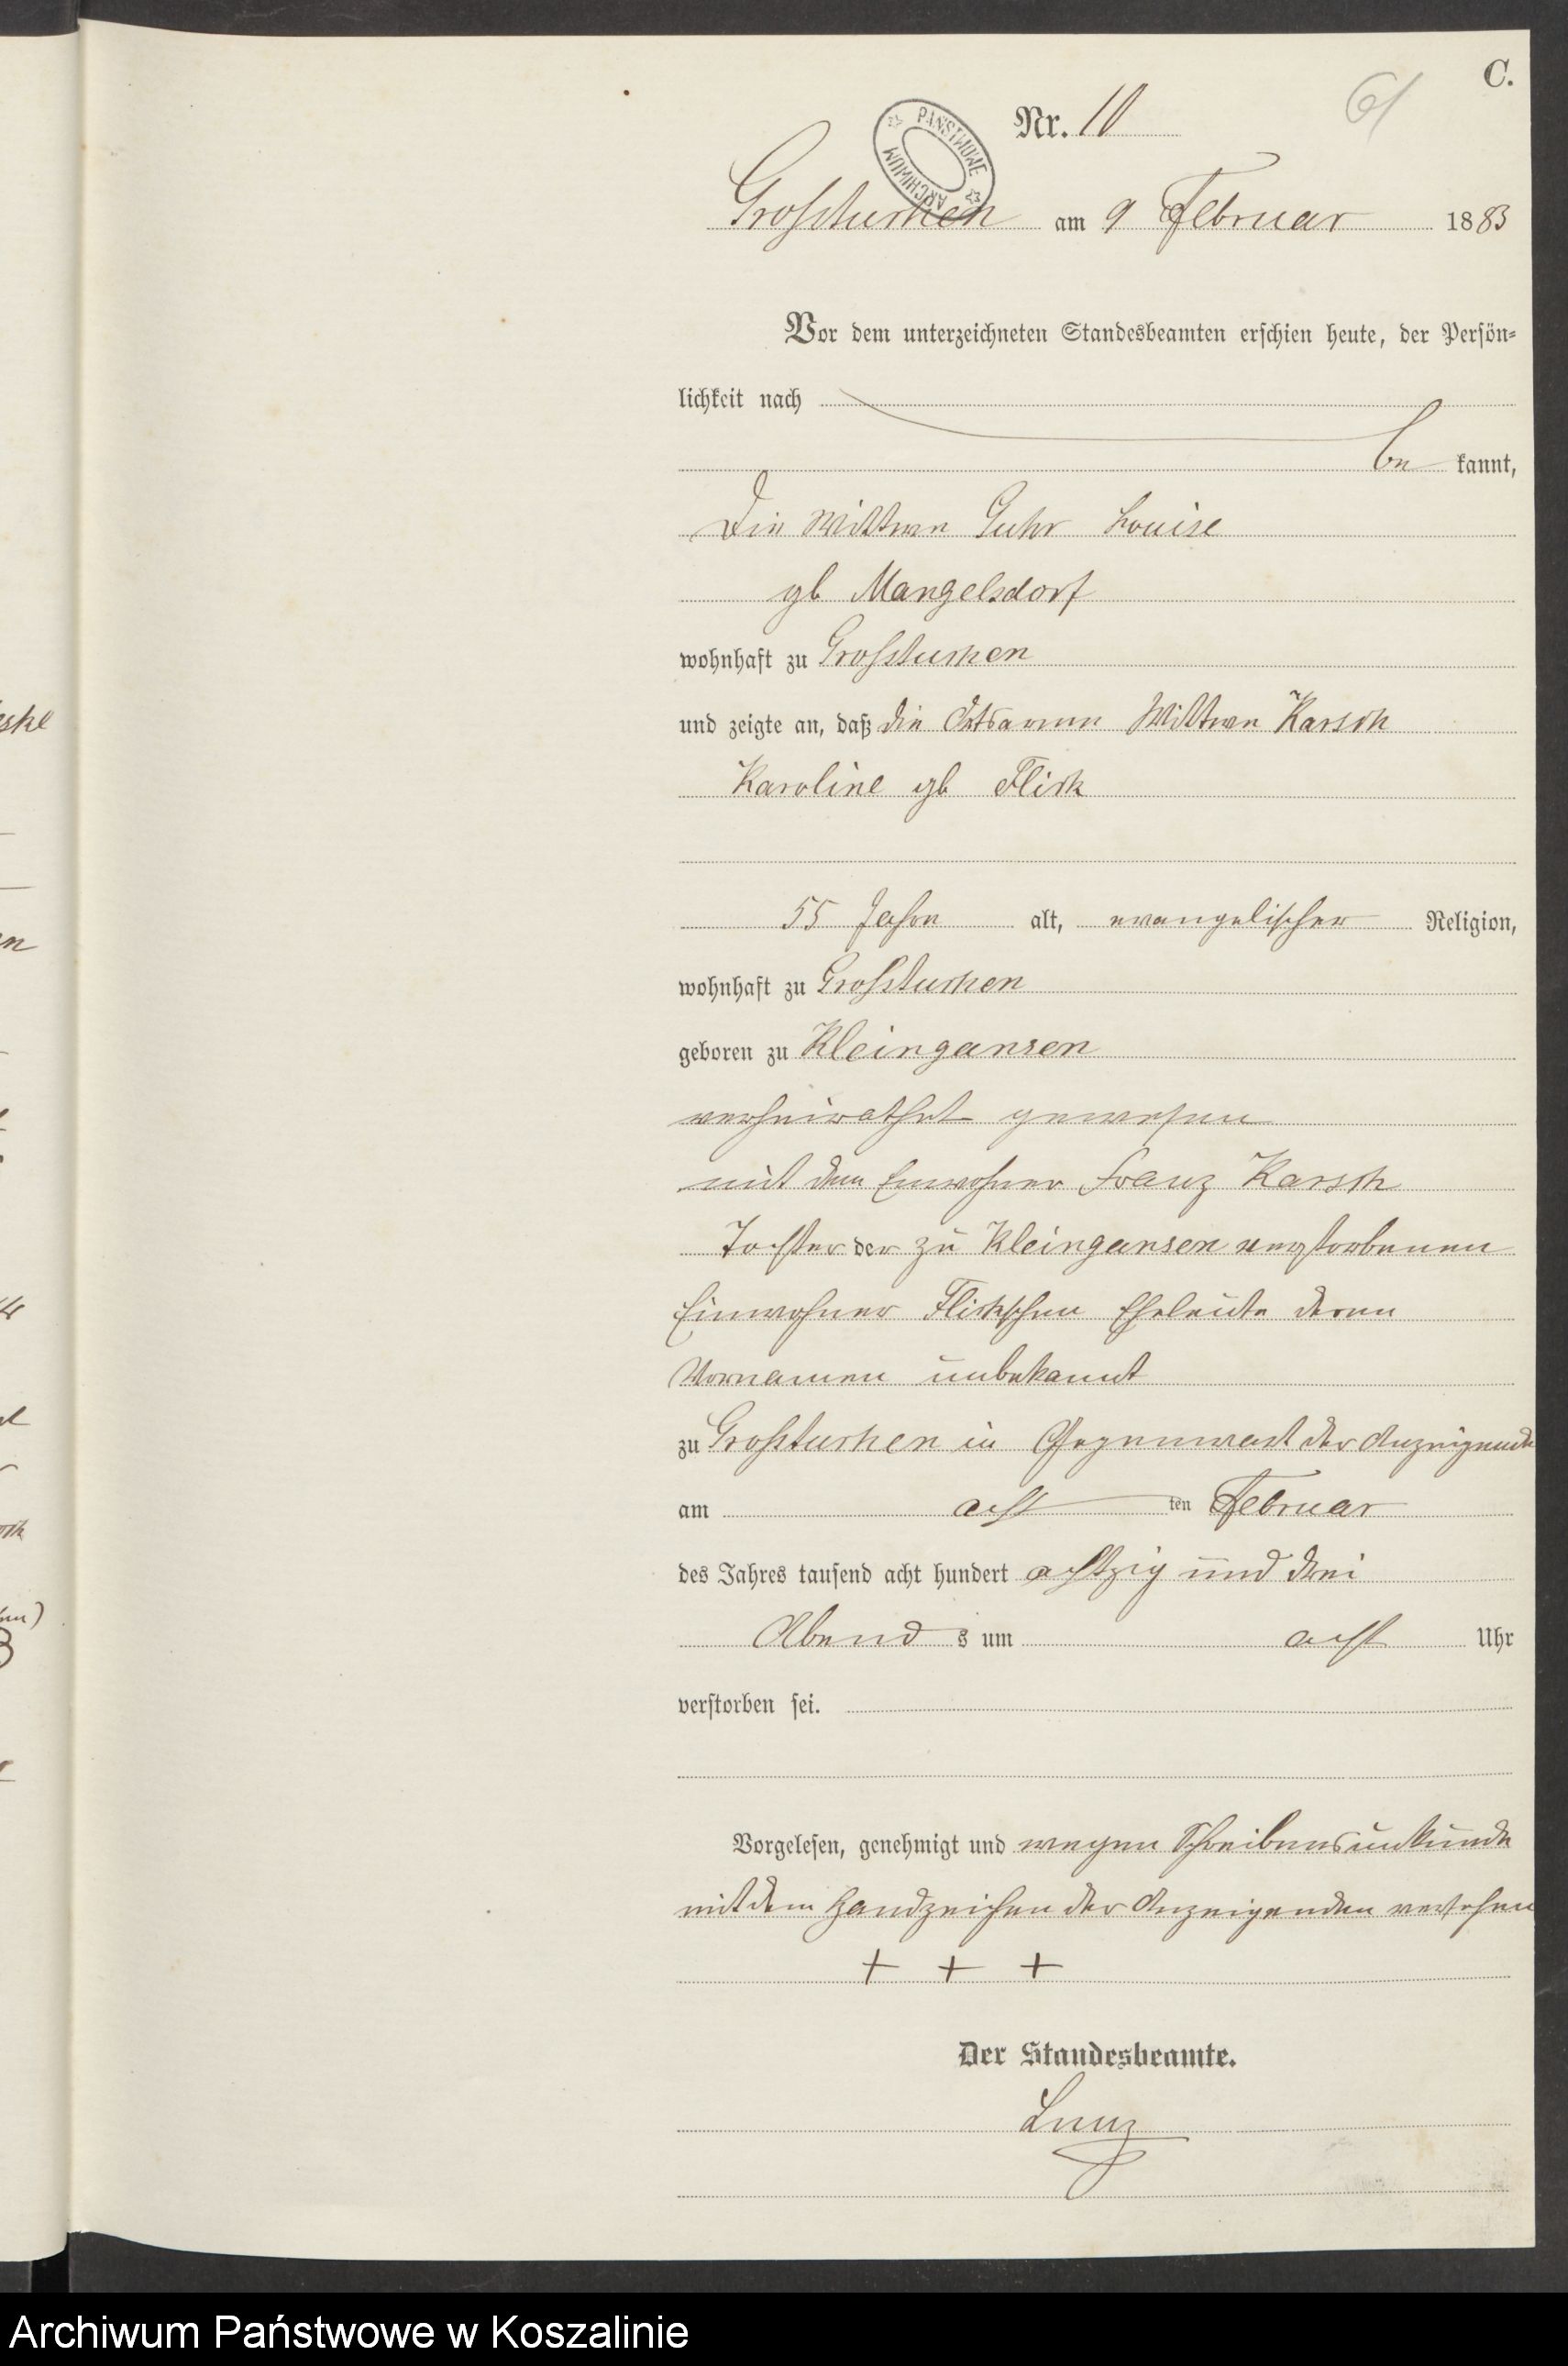 C.
61
Nr. 10
PAŃSTWOWE ARCHIWUM
Grosstuchen am 9 Februar 1883
Vor dem unterzeichneten Standesbeamten erschien heute, der Persön-
lichkeit nach
be kannt,
die Wittwe Guhr Louise
gb Mangelsdorf
wohnhaft zu Grosstuchen
und zeigte an, daß die Ortsarme Wittwe Karsch
Karoline gb
55 Jahre alt, evangelischer Religion,
wohnhaft zu Grosstuchen
geboren zu Kleingansen
verheirathet gewesen
mit dem Einwohner Franz Karsch
Tochter der zu Kleingansen verstorbenen
Einwohner Eheleute deren
Vornamen unbekannt
zu Grosstuchen in Gegenwart der Anzeigende
am acht ten Februar
des Jahres tausend acht hundert achtzig und drei
Abend s um acht Uhr
verstorben sei.
Vorgelesen, genehmigt und wegen Schreibensunkunde
mit dem Handzeichen der Anzeigenden versehen
+ + +
Der Standesbeamte.
Archiwum Państwowe w Koszalinie